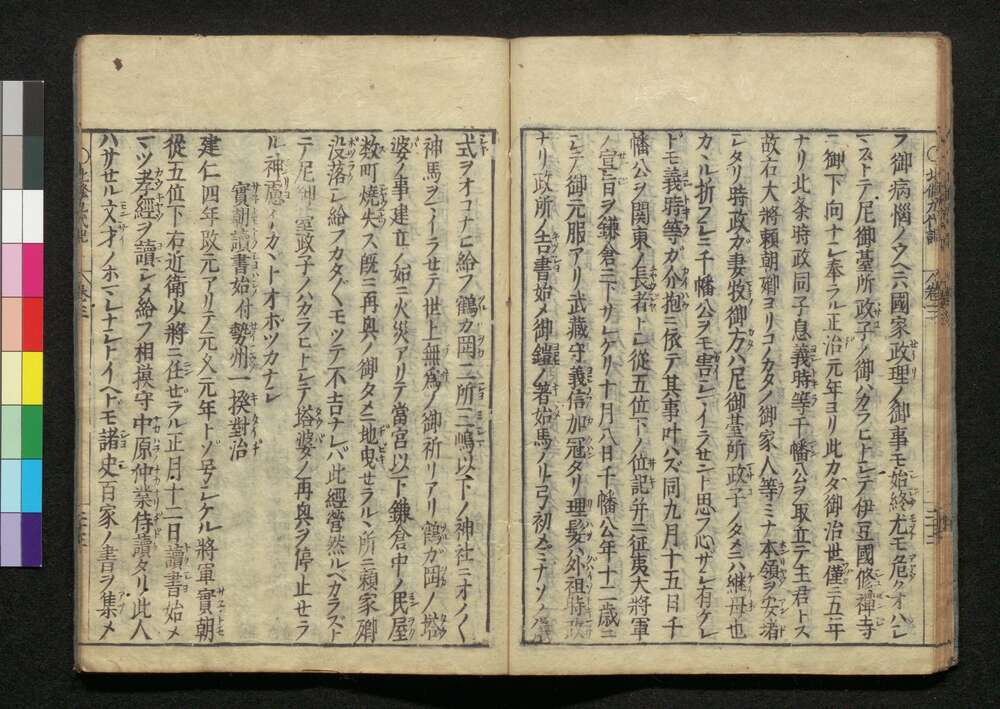 ヲ御病惱ノウヘ六國家政理ノ御事モ始終尤モ危クオハシ
マストテ尼御臺所政子ノ御ハカラヒトシテ伊豆國修禪寺
ニ御下向ナシ奉ル正治元年ヨリ此カタ御治世僅ニ五年
ナリ北条時政同子息義時等千幡公ヲ取立テ主君トス
故右大將頼朝卿ヨリコノカタノ御家人等ミナ本領ヲ安堵
シタリ時政ガ妻牧御方ハ尼御臺所政子ノタメニハ継母也
カヽル折フシニ千幡公ヲモ害シマイラセント思フ心サシ有ケレ
ドモ義時等ガカイ抱ニ依テ其事叶ハズ同九月十五日千
幡公ヲ関東ノ長者トシ從五位下ノ位記并ニ征夷大將軍
ノ宣旨ヲ鎌倉ニ下サレケリ十月八日千幡公年十二歳ニ
シテ御元服アリ武藏守義信加冠タリ理髪ハ外祖時政
ナリ政所ノ吉書始メ御鎧ノ著始馬ノリ弓初メミナソノ
式ヲオコナヒ給フ鶴カ岡二所三嶋以下ノ神社ニオノ〱
神馬ヲマイラセテ世上無為ノ御祈リアリ鶴ガ岡ノ塔
婆ノ事建立ノ始ニ火災アリテ當宮以下鎌倉中ノ民屋
数町燒失ス既ニ再興ノ御タメニ地曳セラルヽ所ニ頼家卿
没落シ給フカタ〲モツテ不吉ナレバ此經營然ルベカラズト
テ尼御臺政子ノハカラヒトシテ塔婆ノ再興ヲ停止セラ
ル神慮イカヾトオボツカナシ
實朝讀書始付勢州一揆對治
建仁四年改元アリテ元久元年トゾ号シケル將軍實朝
從五位下右近衛少將ニ任ゼラル正月十二日讀書始メ
マヅ孝經ヲ讀シメ給フ相模守中原仲業侍讀タリ此人
ハサセル文才ノホマレナシトイヘドモ諸史百家ノ書ヲ集メ